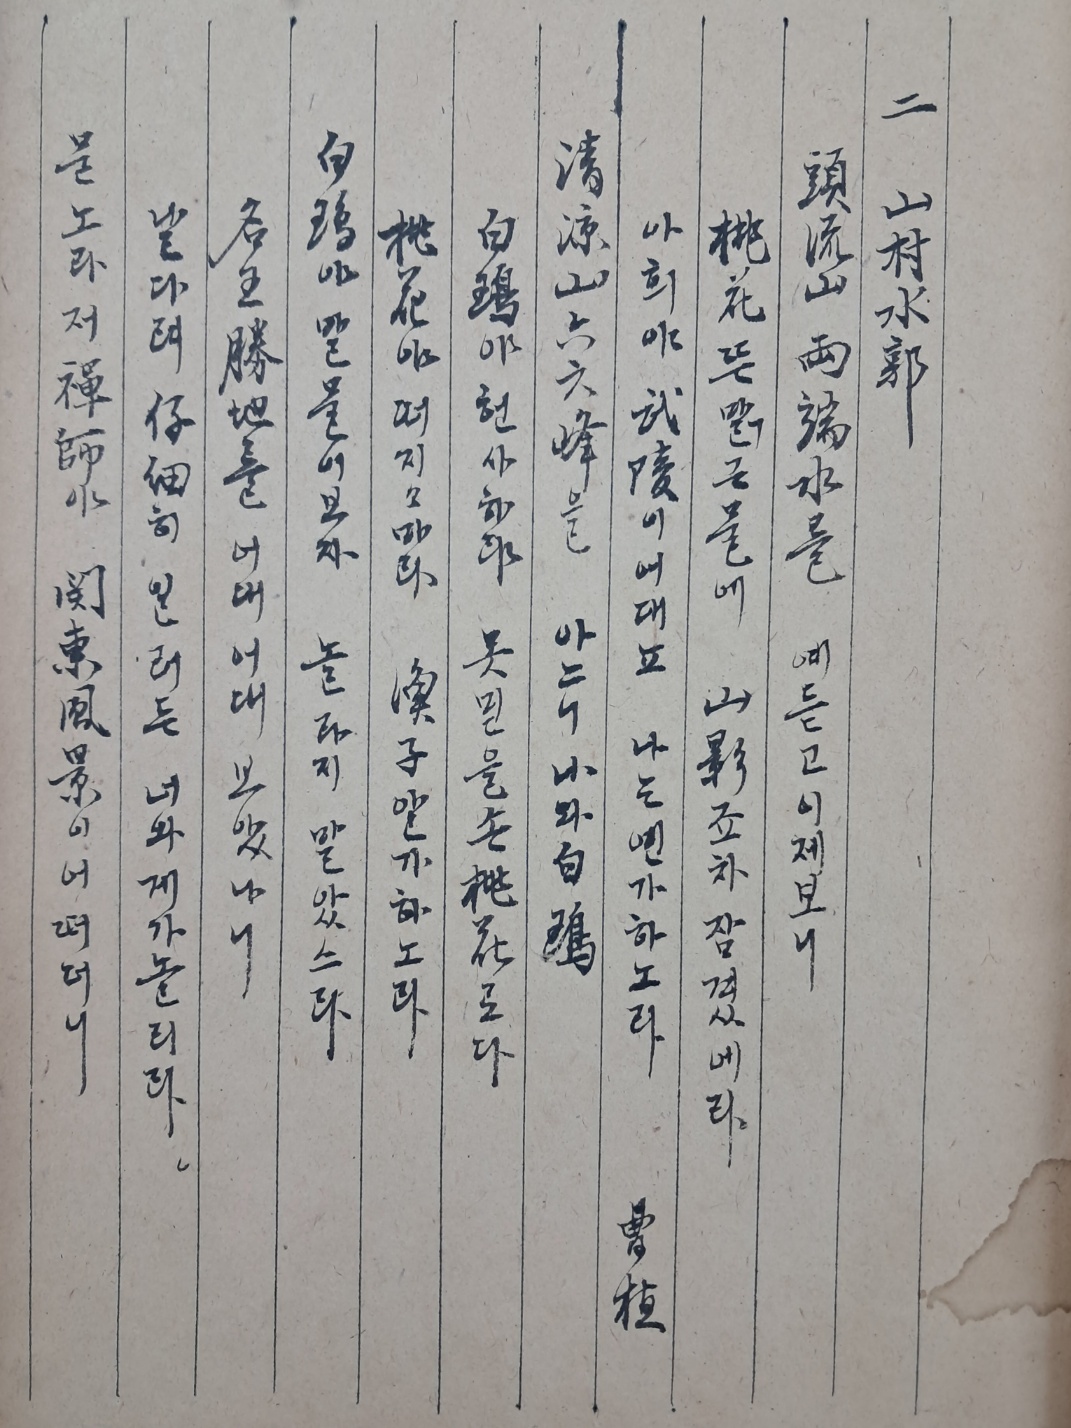 二 山村水郭
頭流山 兩端水를 예듣고이제보니
桃花뜬맑근물에 山影죠차 잠겼세라
아희야 武陵이어대뇨 나는옌가하노라 曺植
清凉山六六峰을 아느니 나와白鷗
白鷗야헌사하랴 못믿을손桃花로다
桃花야떠지지마라 漁子알가하노라
白鷗야말물어보자 놀라지말았스라
名土勝地를 어대어대보았나니
날다려 仔細히일러든 너와게가놀리라
묻노라저禪師야 関東風景이어떠터니